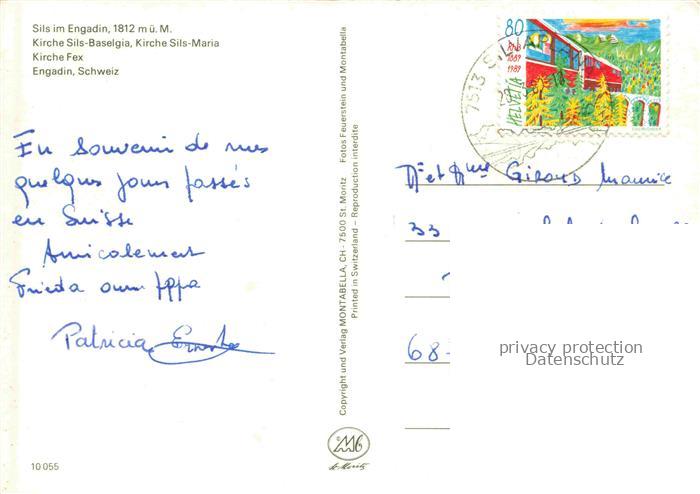 Sils im Engadin, 1812 m ü. M.
Kirche Sils-Baselgia, Kirche Sils-Maria
Kirche Fex
Engadin, Schweiz
En Souvenir de mes
quelques jours passés
en Suisse
Amicalement
Frieda
Patricia
10 055
Copyright und Verlag MONTABELLA, CH - 7500 St. Moritz Fotos Feuerstein und Montabella
Printed in Switzerland – Reproduction interdite
M6
St. Moritz
80
RhB
1889
1989
HELVETIA
7513 SILVAPL
Mr et Mme GIROUD Maurice
33
68-
privacy protection
Datenschutz